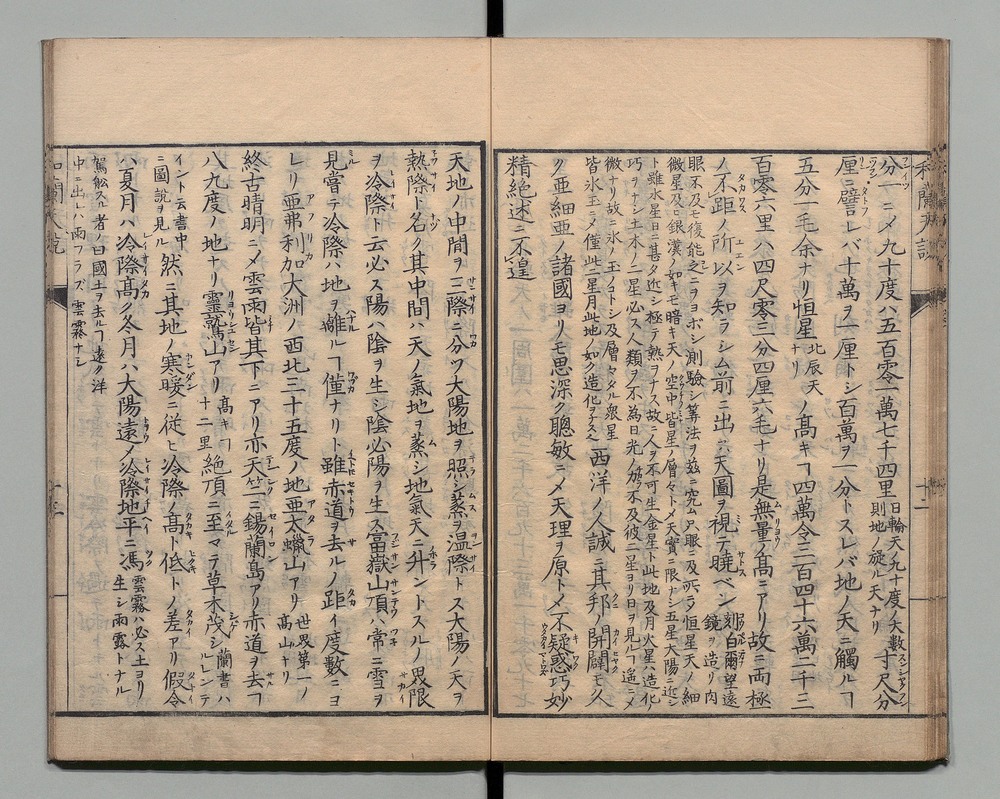 和蘭天説
分一ニメ九十度ハ五百零一萬七十四里 日輪天ノ九十度ノ大數 寸尺分
則地ノ旋ル天ナリ
厘ニ譬レバ十萬ヲ一厘トシ百萬ヲ一分トスレバ地ノ天ニ觸ルヿ
五分一毛余ナリ恒星 北辰天ナリ ノ髙キヿ四萬令三百四十六萬二千三
百零六里八四尺零三分四厘六毛ナリ是無量ノ髙ニアリ故ニ両極
ノ不距ノ所以ヲ知ラシム前ニ出ス天圖ヲ視テ曉ベシ 刻白爾望遠鏡ヲ造リ内
眼不及モ復能之ニヲヨボシ測驗シ筭法ヲ茲ニ究ム只眼ニ及所ラ恒星天ノ細
微星及ヒ銀漢ノ如キモ暗キ天ノ空中皆星ノ層々トメ天實ニ限ナシ五星太陽ニ近シ
ト雖水星日ニ甚タ近シ極テ熱ヲナス故ニ人ヲ不可生金星ト此地及月火星ハ造化
巧ヲナシ土木ノ二星必ス人類ヲ不為日光ノ力不及彼二星ヨリ日ヲ見ルヿ遙ニメ
微ナリ故ニ氷ノ玉ノコトシ及層々タル衆星
皆氷玉ニメ僅此二星月此地ノ如ク造化ヲナス 西洋ノ人誠ニ其邦ノ開闢モ久
ク亜細亜ノ諸國ヨリモ思深ク聰敏ニメ天理ヲ原トメ不疑惑巧妙
精絶述ニ不遑
天地ノ中間ヲ三際ニ分ツ大陽地ヲ照シ蒸ヲ温際トス大陽ノ天ヲ
熱際ト名ク其中間ハ天ノ氣地ヲ蒸シ地氣天ニ升ントスルノ畏限
ヲ冷際ト云必ス陽ハ陰ヲ生シ陰必陽ヲ生ス富嶽山頂ハ常ニ雪ヲ
見當テ冷際ハ地ヲ離ルヿ僅ナリト雖赤道ヲ去ルノ距イ度數ニヨ
レリ亜弗利加大洲ノ西北三十五度ノ地亜太蠟山アリ 世界第一ノ髙山ナリ
終古晴明ニメ雲雨皆其下ニアリ亦天竺ニ錫蘭島アリ赤道ヲ去ヿ
八九度ノ地ナリ靈鷲山アリ 髙キヿ十二里 絶頂ニ至マテ草木茂シ 蘭書ハシルレンテ
イント云書中ニ圖説ヲ見ル 然ニ其地ノ寒暖ニ従ヒ冷際ノ髙ト低トノ差アリ假令
ハ夏月ハ冷際髙ク冬月ハ大陽遠メ冷際地平ニ馮 雲霧ハ必ス土ヨリ生シ雨露トナル
駕舩スル者ノ曰國土ヲ去ルヿ遠ク洋
中ニ出レハ雨フラズ雲霧ナシ